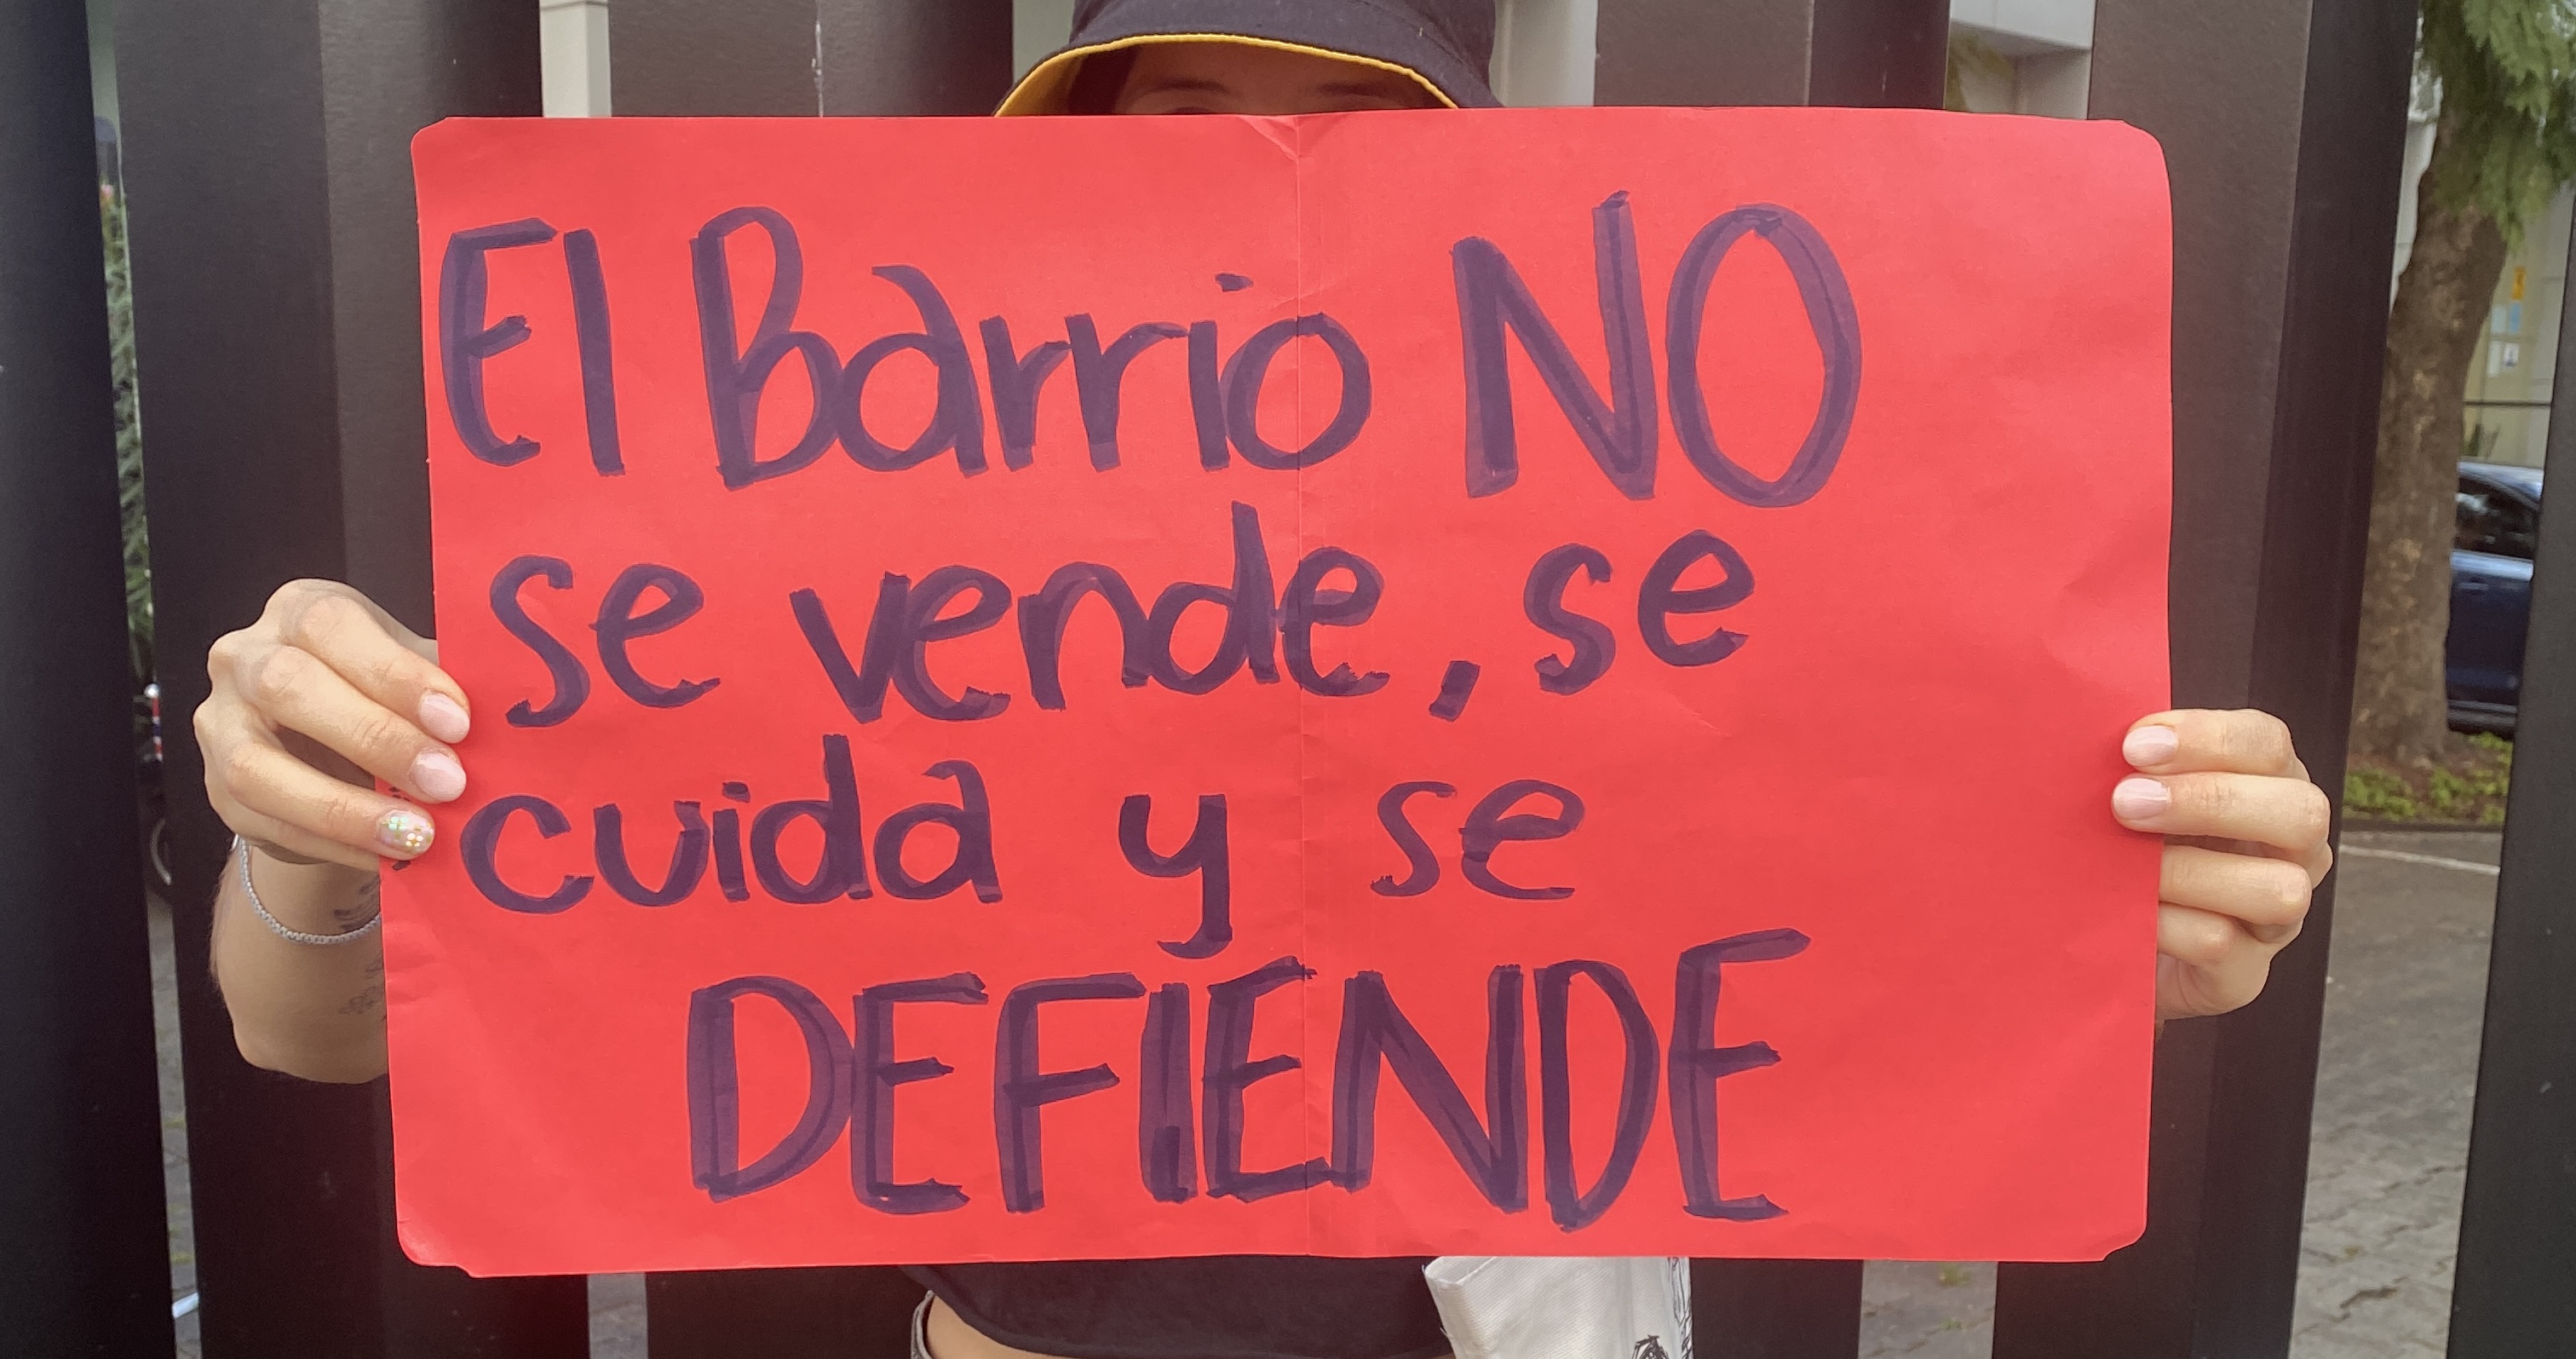 El Barrio NO
se vende, se
cuida y se
DEFIENDE